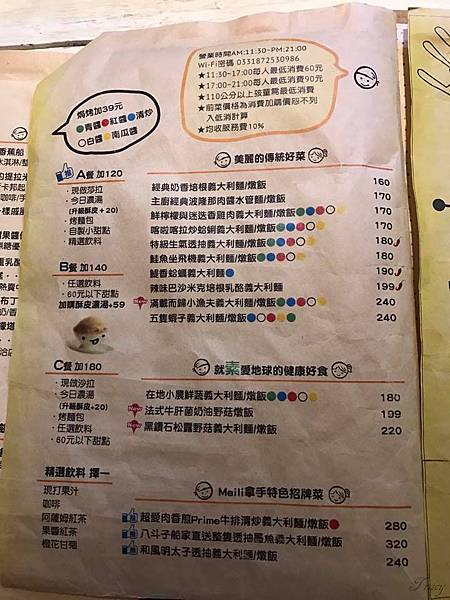 營業時間AM:11:30~PM:21:00
Wi-Fi密碼 0331872530986
★11:30-17:00每人最低消費60元
★17:00-21:00每人最低消費90元
★110公分以上孩童需最低消費
★前菜價格為消費加購價恕不列
入低消計算
★均收服務費10%
焗烤加39元
青醬 紅醬 清炒
白醬 南瓜醬
A餐 加120
·現做沙拉
·今日濃湯
(升級酥皮+20)
·烤麵包
·自製小甜點
·精選飲料
B餐 加140
·任選飲料
·60元以下甜點
加購酥皮濃湯+59
C餐 加180
·現做沙拉
·今日濃湯
(升級酥皮+20)
·烤麵包
·任選飲料
·60元以下甜點
精選飲料 擇一
現打果汁
咖啡
阿薩姆紅茶
果醬紅茶
橙花甘菊
美麗的傳統好菜
經典奶香培根義大利麵/燉飯 160
主廚經典波隆那肉醬水管麵/燉飯 170
鮮檸檬與迷迭香雞肉義大利麵/燉飯 170
喀啦喀拉炒蛤蜊義大利麵/燉飯 170
特級生氣透抽義大利麵/燉飯 180
鮭魚坐飛機義大利麵/燉飯 180
鯷香蛤蠣義大利麵 190
辣味巴沙米克培根乳酪義大利麵 199
滿載而歸小漁夫義大利麵/燉飯 240
五隻蝦子義大利麵/燉飯 240
就素愛地球的健康好食
在地小農鮮蔬義大利麵/燉飯 180
法式牛肝菌奶油野菇燉飯 199
黑鑽石松露野菇義大利麵/燉飯 220
Meili拿手特色招牌菜
超愛肉香煎Prime牛排清炒義大利麵/燉飯 280
八斗子船家直送整隻透抽墨魚義大利麵/燉飯 320
和風明太子透抽義大利麵/燉飯 240
Tracy